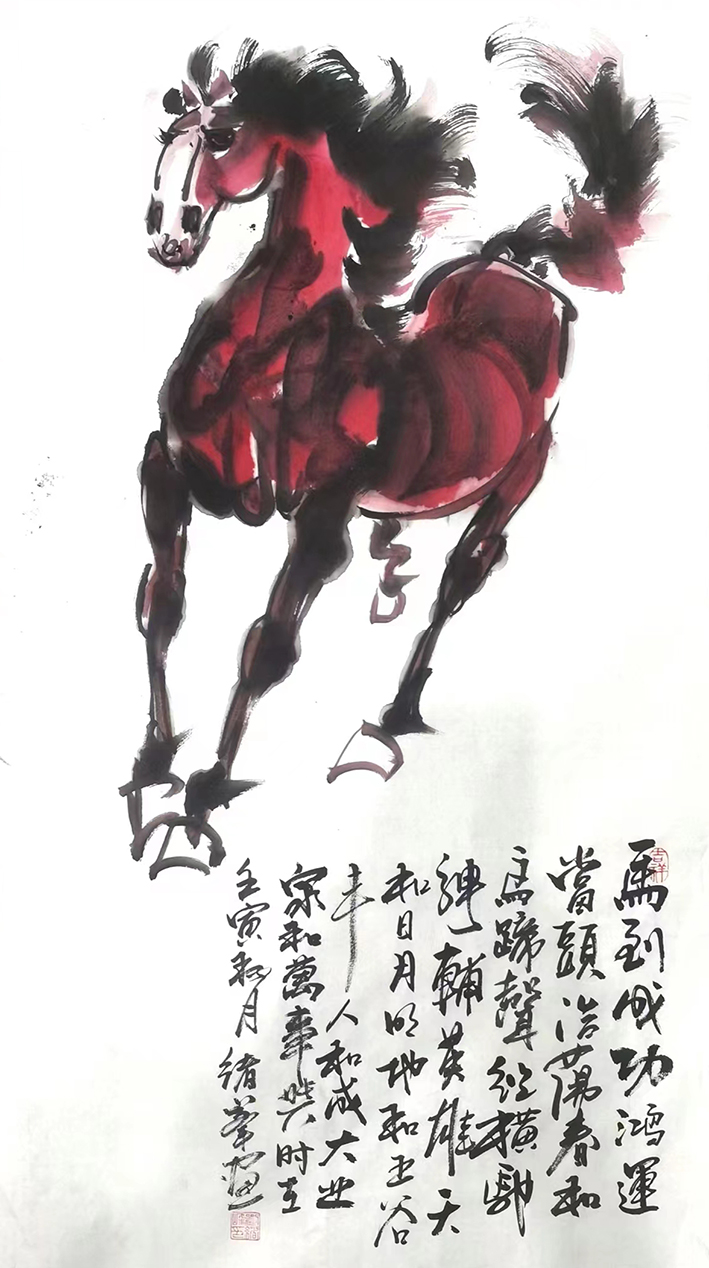 吉祥
馬到成功鴻運
當頭浩蕩春和
馬蹄聲纵橫馳
騁輔英雄天
和日月明地和五谷
丰人和成大业
家和萬事興时在
壬寅秋月绪峯画